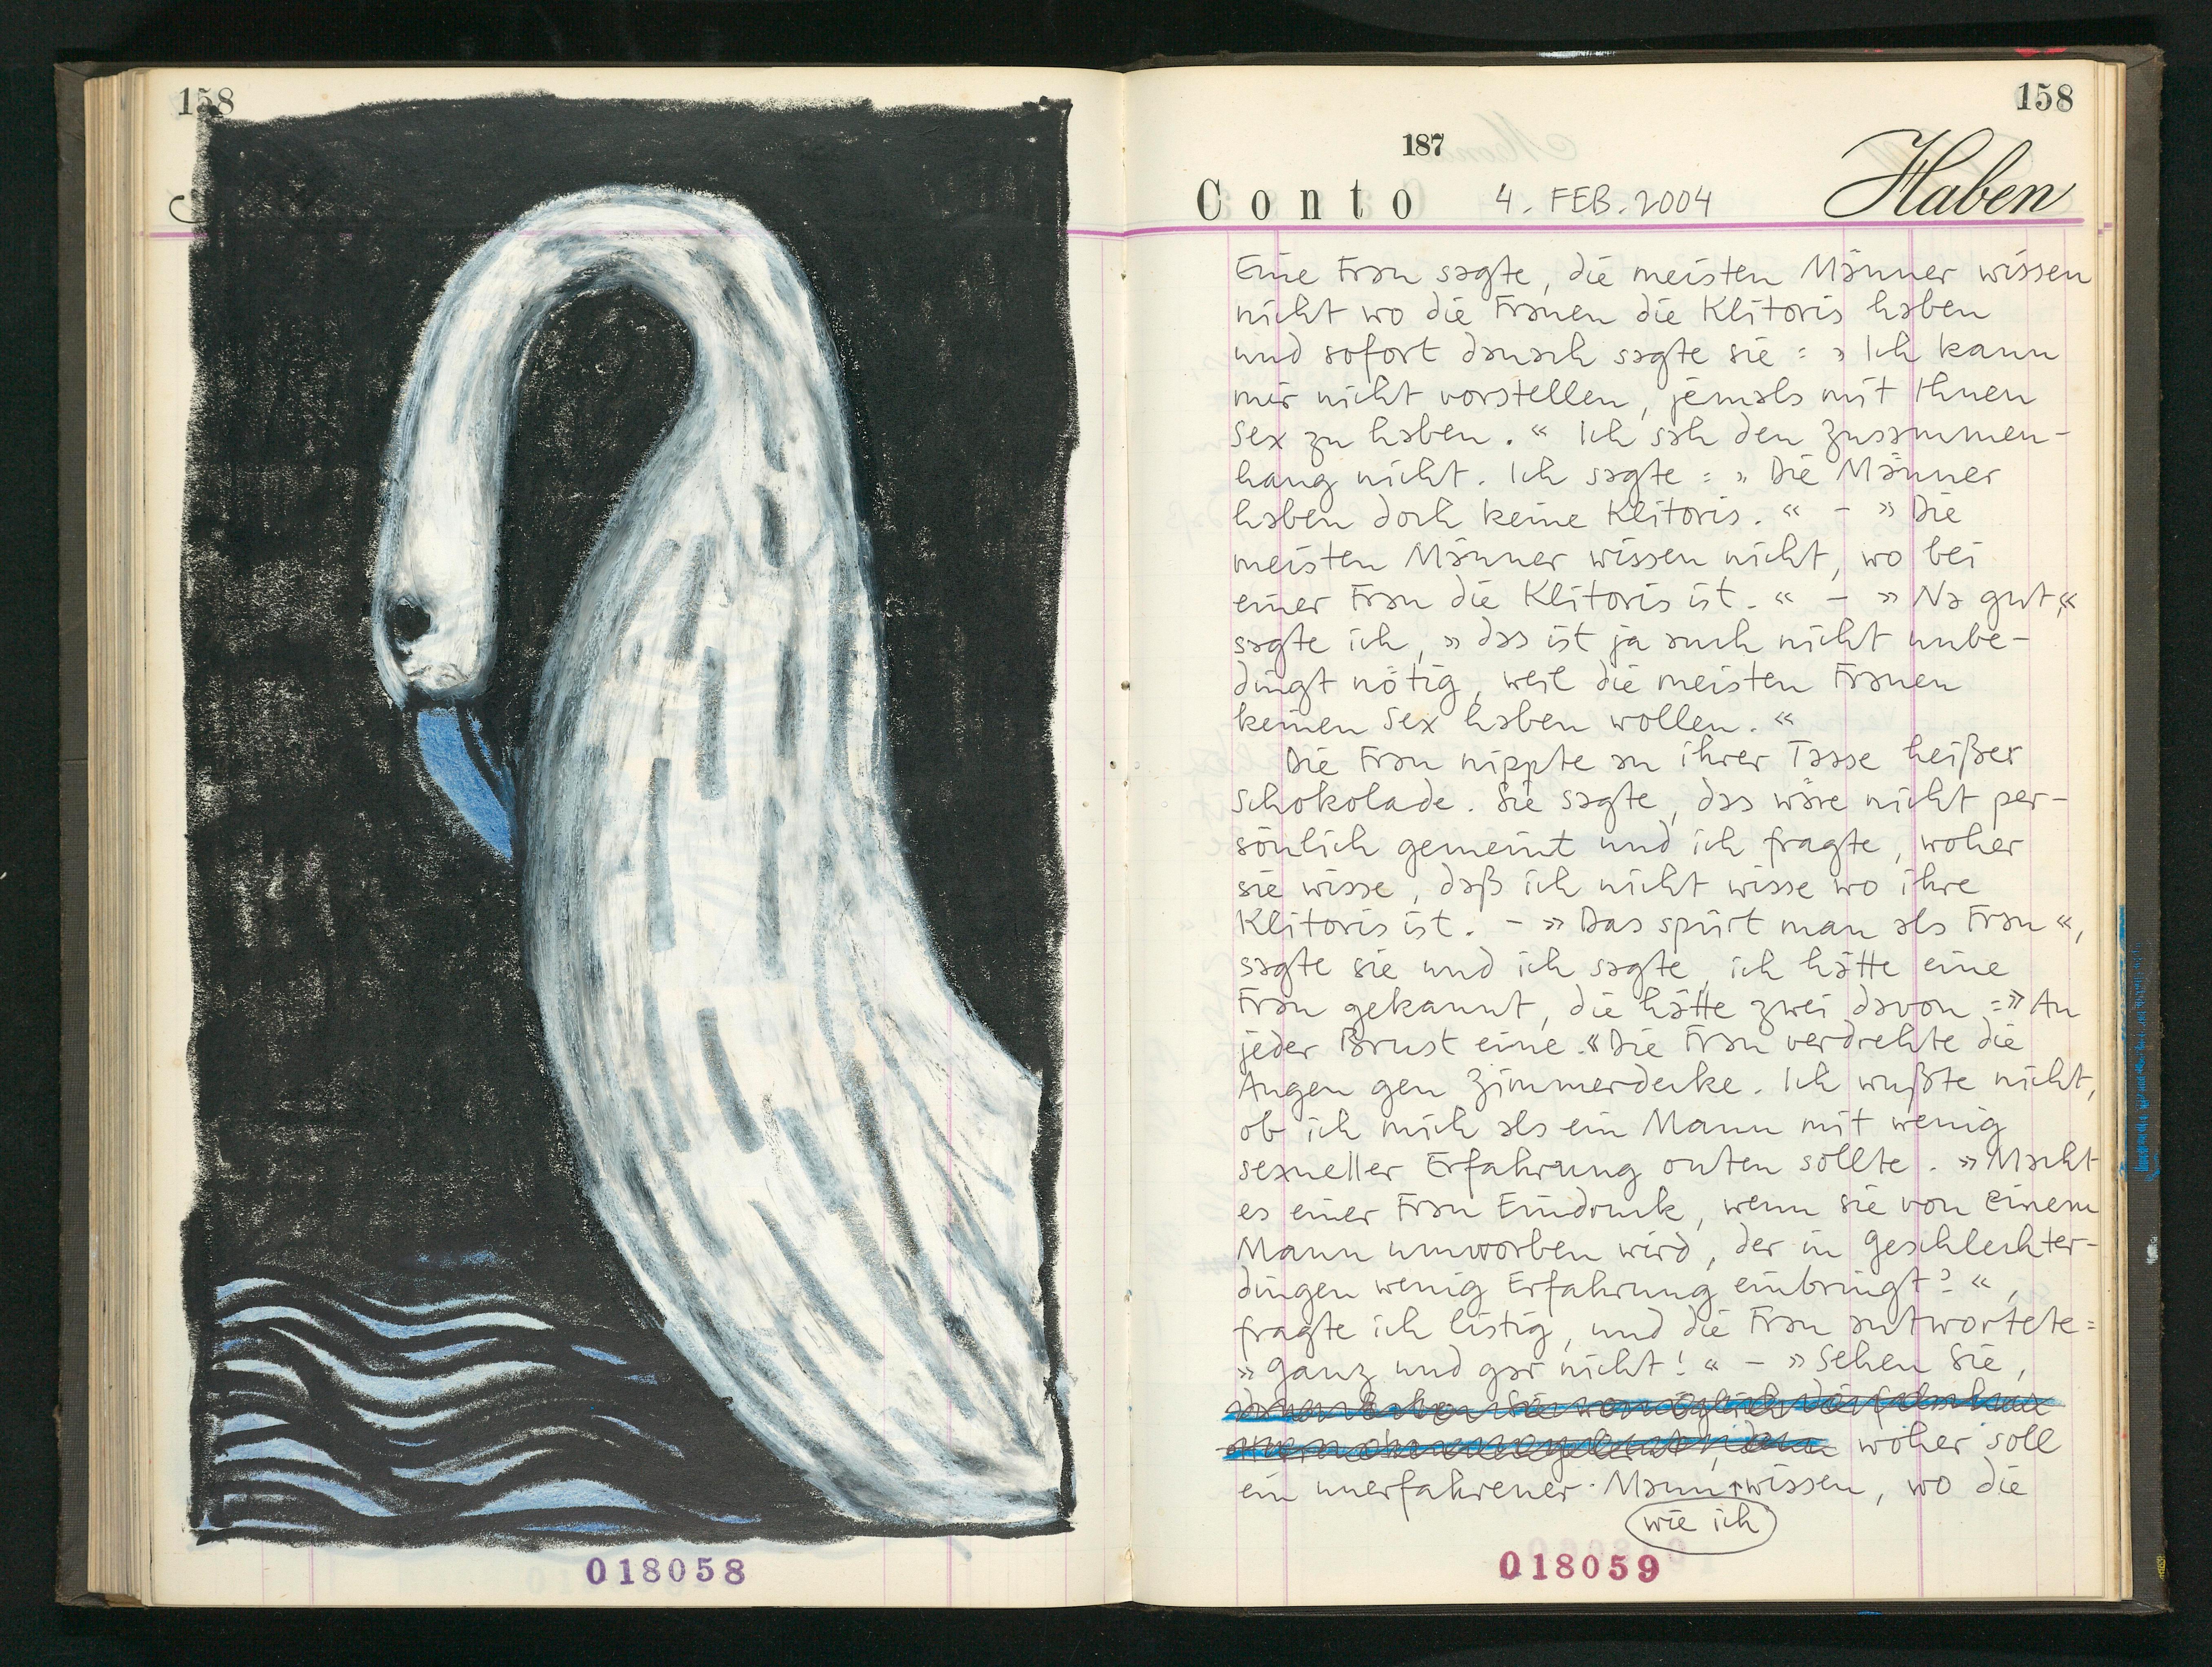 158
018058
158
187
Conto 4. FEB. 2004 Haben
Eine Frau sagte, die meisten Männer wissen
nicht wo die Frauen die Klitoris haben
und sofort danach sagte sie: »Ich kann
mir nicht vorstellen, jemals mit Ihnen
Sex zu haben.« Ich sah den Zusammen-
hang nicht. Ich sagte: »Die Männer
haben doch keine Klitoris.« – »Die
meisten Männer wissen nicht, wo bei
einer Frau die Klitoris ist.« – »Na gut,«
sagte ich, »das ist ja auch nicht unbe-
dingt nötig, weil die meisten Frauen
keinen Sex haben wollen.«
Die Frau nippte an ihrer Tasse heißer
Schokolade. Sie sagte, das wäre nicht per-
sönlich gemeint und ich fragte, woher
sie wisse, daß ich nicht wisse wo ihre
Klitoris ist. – »Das spürt man als Frau«,
sagte sie und ich sagte, ich hätte eine
Frau gekannt, die hätte zwei davon: »An
jeder Brust eine.« Die Frau verdrehte die
Augen gen Zimmerdecke. Ich wußte nicht,
ob ich mich als ein Mann mit wenig
sexueller Erfahrung outen sollte. »Macht
es einer Frau Eindruck, wenn sie von einem
Mann umworben wird, der in Geschlechter-
dingen wenig Erfahrung einbringt?«,
fragte ich listig, und die Frau antwortete:
»Ganz und gar nicht!« – »Sehen Sie,
woher soll
ein unerfahrener Mann wissen, wo die
wie ich
018059